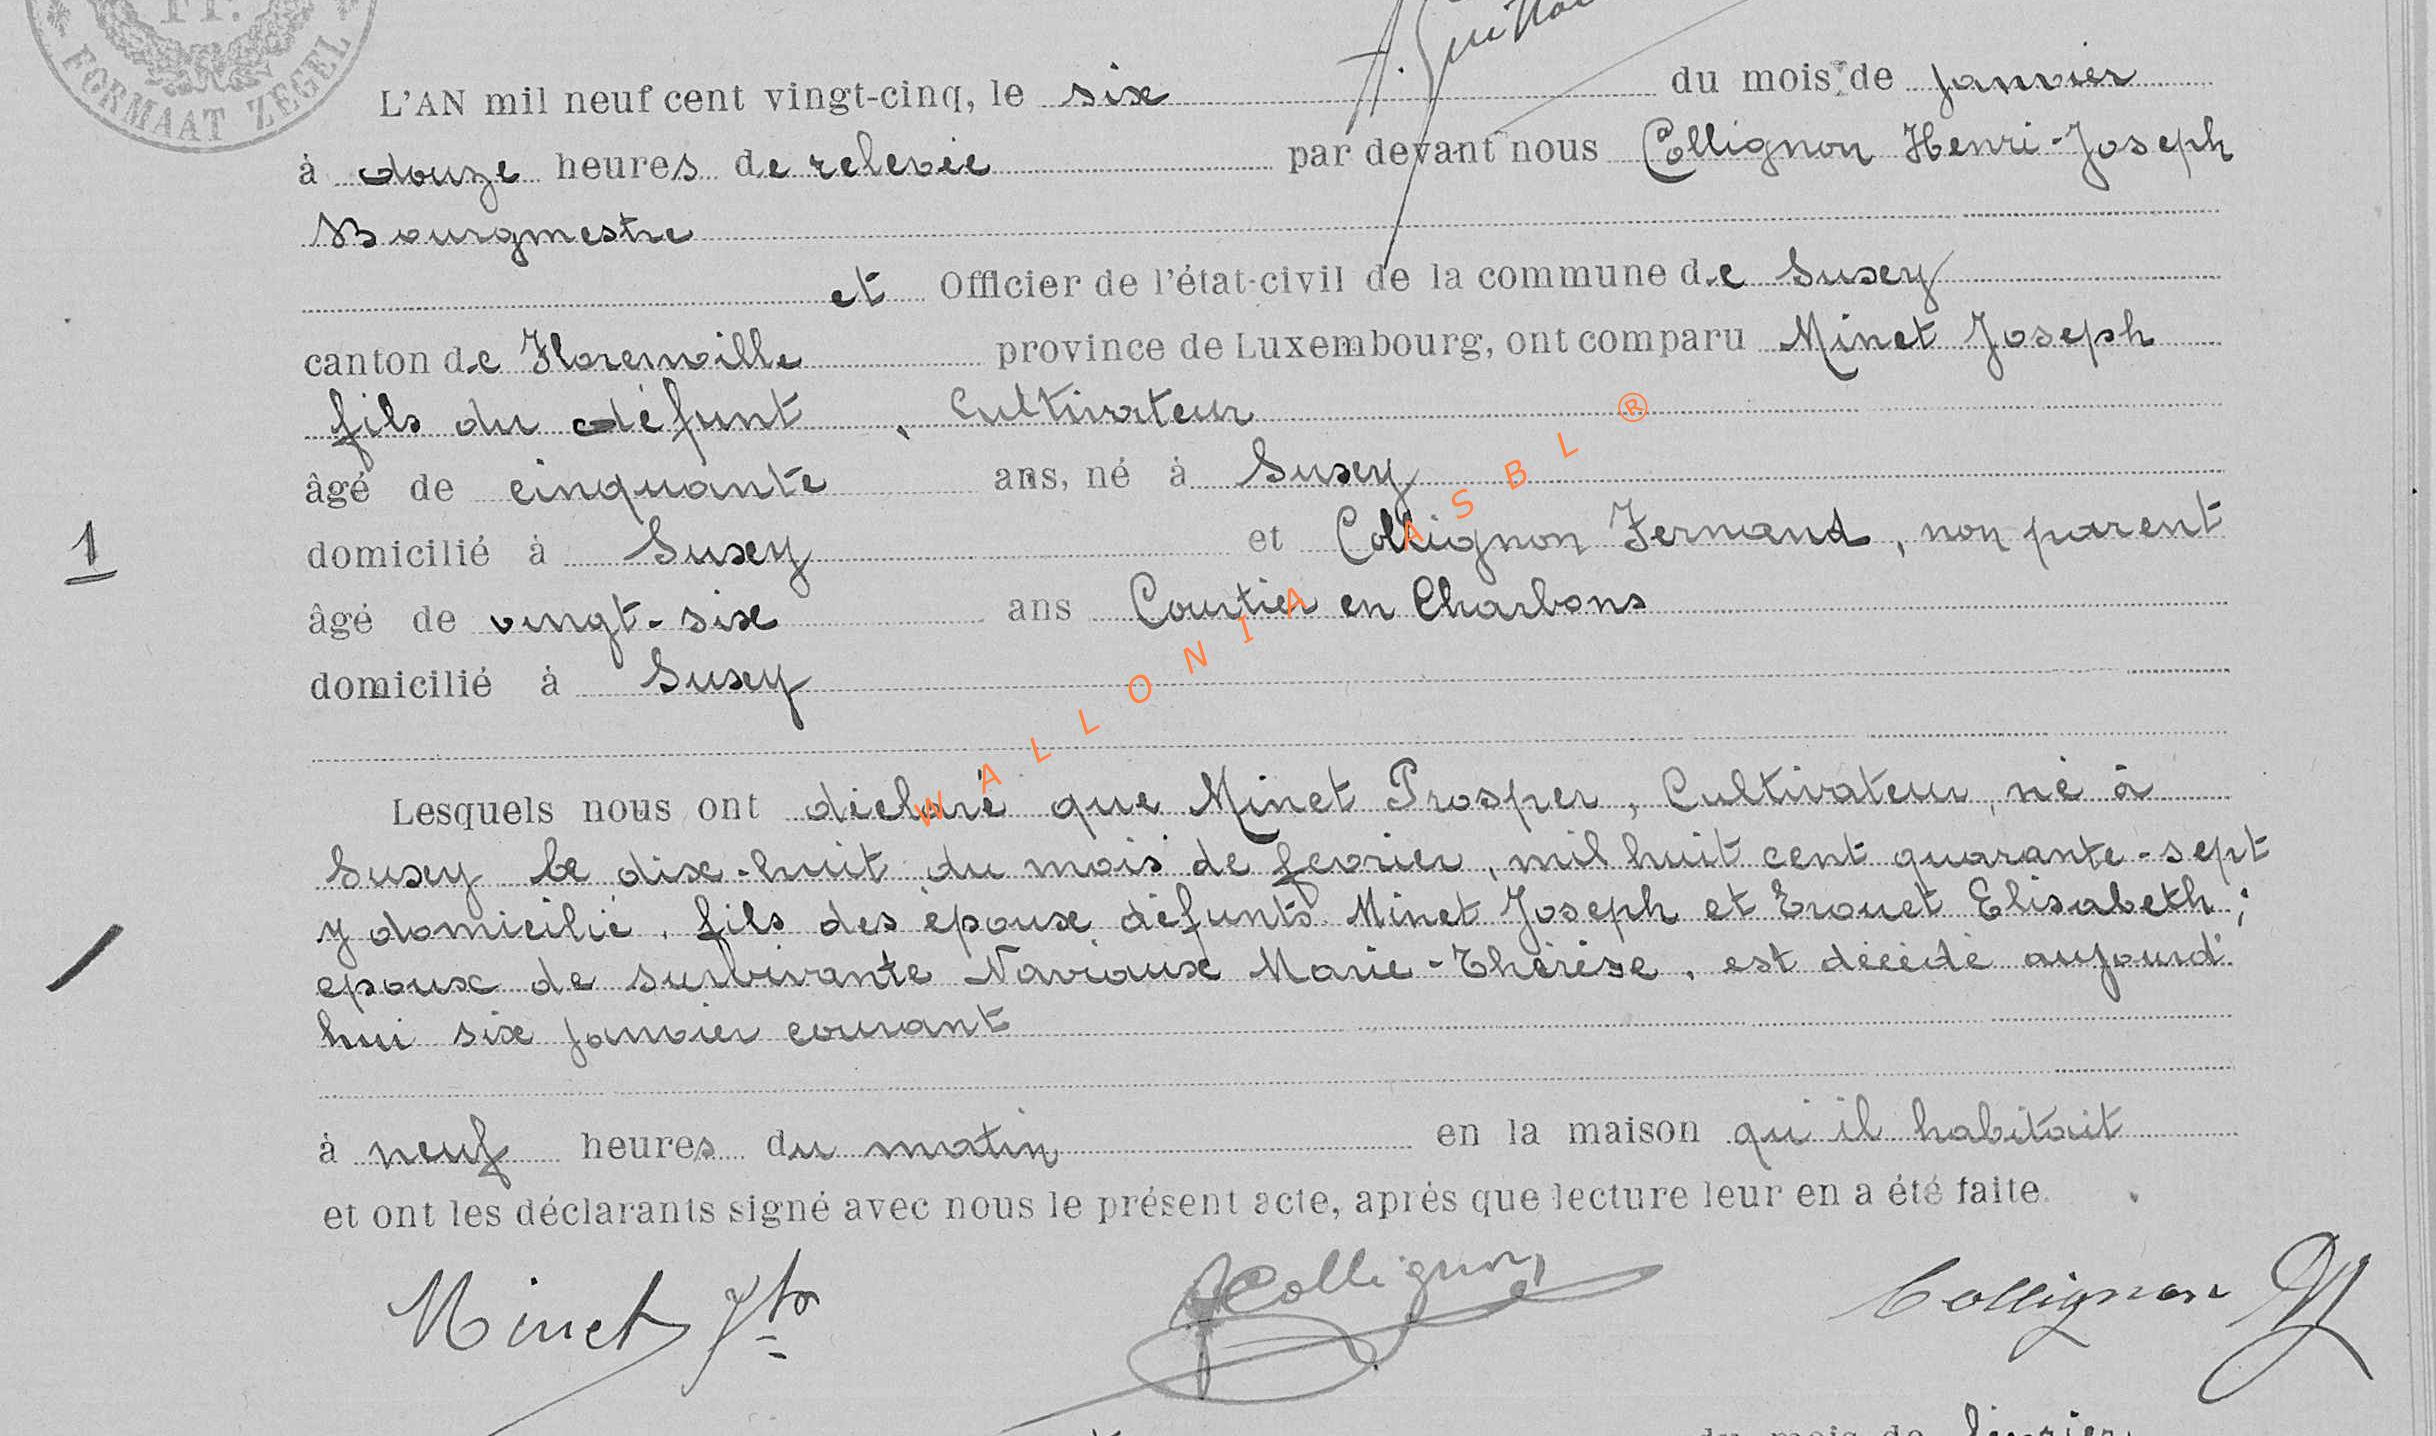 FORMAAT ZEGEL
L'AN mil neuf cent vingt-cinq, le six du mois de Janvier
à douze heures de relevée par devant nous Collignon Henri-Joseph
Bourgmestre
et Officier de l'état-civil de la commune de Suxey
canton de Florenville province de Luxembourg, ont comparu Minet Joseph
fils du défunt, Cultivateur
âgé de cinquante ans, né à Suxey
1
domicilié à Suxey et Collignon Fernand, non parent
âgé de vingt-six ans Courtier en Charbons
domicilié à Suxey
WALLONIA ASBL ®
Lesquels nous ont déclaré que Minet Prosper, Cultivateur, né à
Suxey le dix-huit du mois de fevrier, mil huit cent quarante-sept
y domicilié, fils des epoux défunts Minet Joseph et Erouet Elisabeth;
epoux de survivante Naviaux Marie-Thérèse, est décédé aujourd'
hui six janvier courant
à neuf heures du matin en la maison qu'il habitait
et ont les déclarants signé avec nous le présent acte, après que lecture leur en a été faite.
Minet Jph Collignon Collignon
du mois de